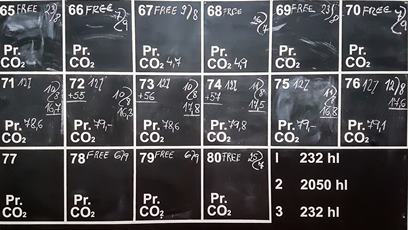 65 FREE 23/8
Pr.
CO₂
66 FREE 7/9
Pr.
CO₂
67 FREE 9/8
Pr.
CO₂ 4,7
68 FREE 26/7
Pr.
CO₂ 4,9
69 FREE 23/8
Pr.
CO₂
70 FREE 7/9
Pr.
CO₂
71 127 10/8
16,7
Pr. 78,6
CO₂
72 127 10/8
+55 16,3
Pr. 79,-
CO₂
73 127 10/8
+56 17,8
Pr. 78,6
CO₂
74 127 11/8
+57 17,5
Pr. 79,8
CO₂
75 127 11/8
16,8
Pr. 79,-
CO₂
76 127 12/8
17,6
Pr. 79,1
CO₂
77
Pr.
CO₂
78 FREE 6/9
Pr.
CO₂
79 FREE 6/9
Pr.
CO₂
80 FREE 25/7
Pr.
CO₂
1 232 hl
2 2050 hl
3 232 hl